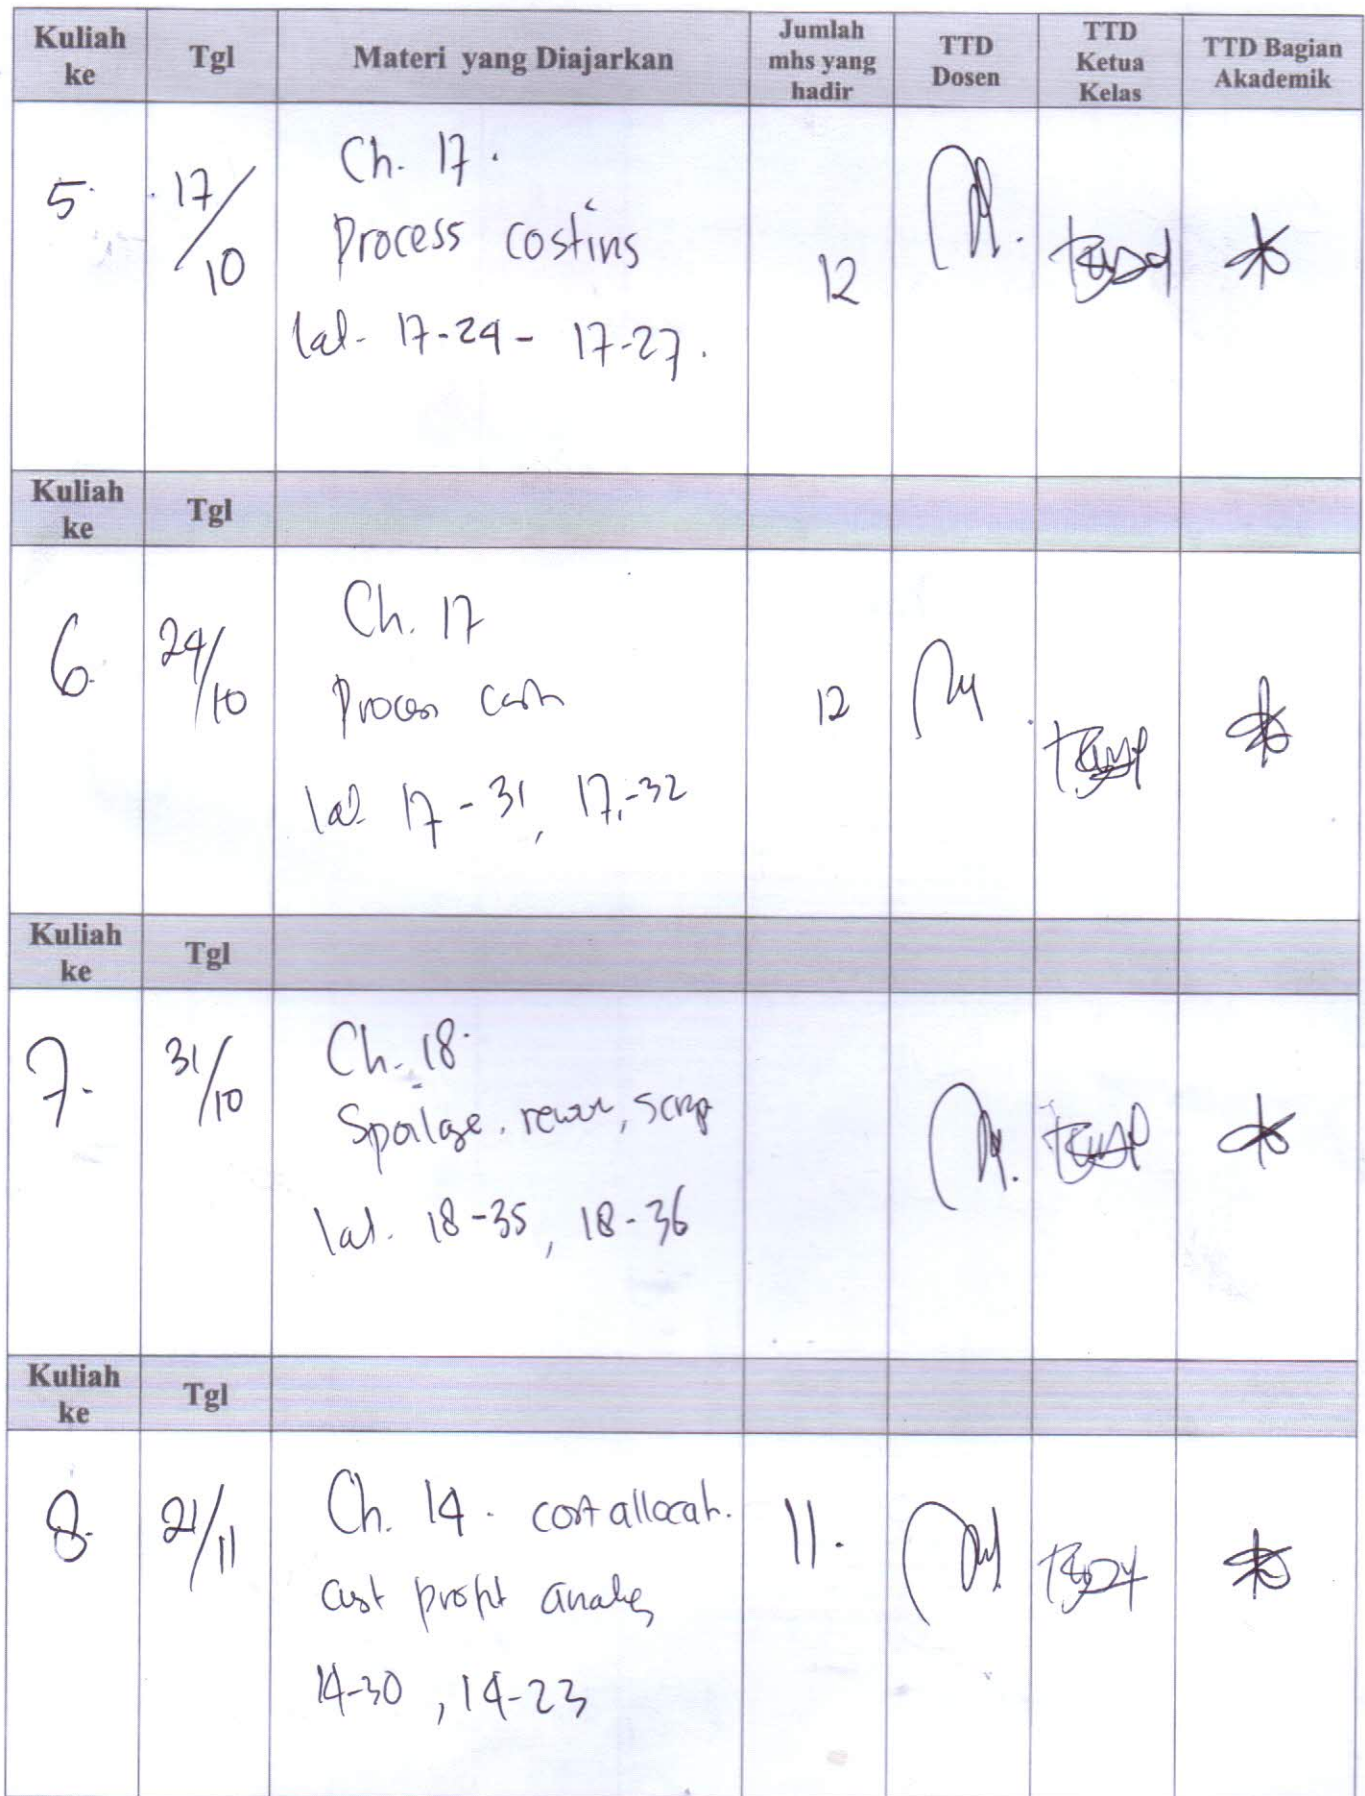 Kuliah ke Tgl Materi yang Diajarkan Jumlah mhs yang hadir TTD Dosen TTD Ketua Kelas TTD Bagian Akademik
5. 17/10 Ch. 17.
Process costing
12
lat. 17-24 - 17-27.
Kuliah ke Tgl
6. 24/10 Ch. 17
Process cost
12
lat 17-31, 17-32
Kuliah ke Tgl
7. 31/10 Ch. 18.
Spoilage, rework, scrap
lat. 18-35, 18-36
Kuliah ke Tgl
8. 21/11 Ch. 14. cost allocat. 11.
cost profit
14-30, 14-23